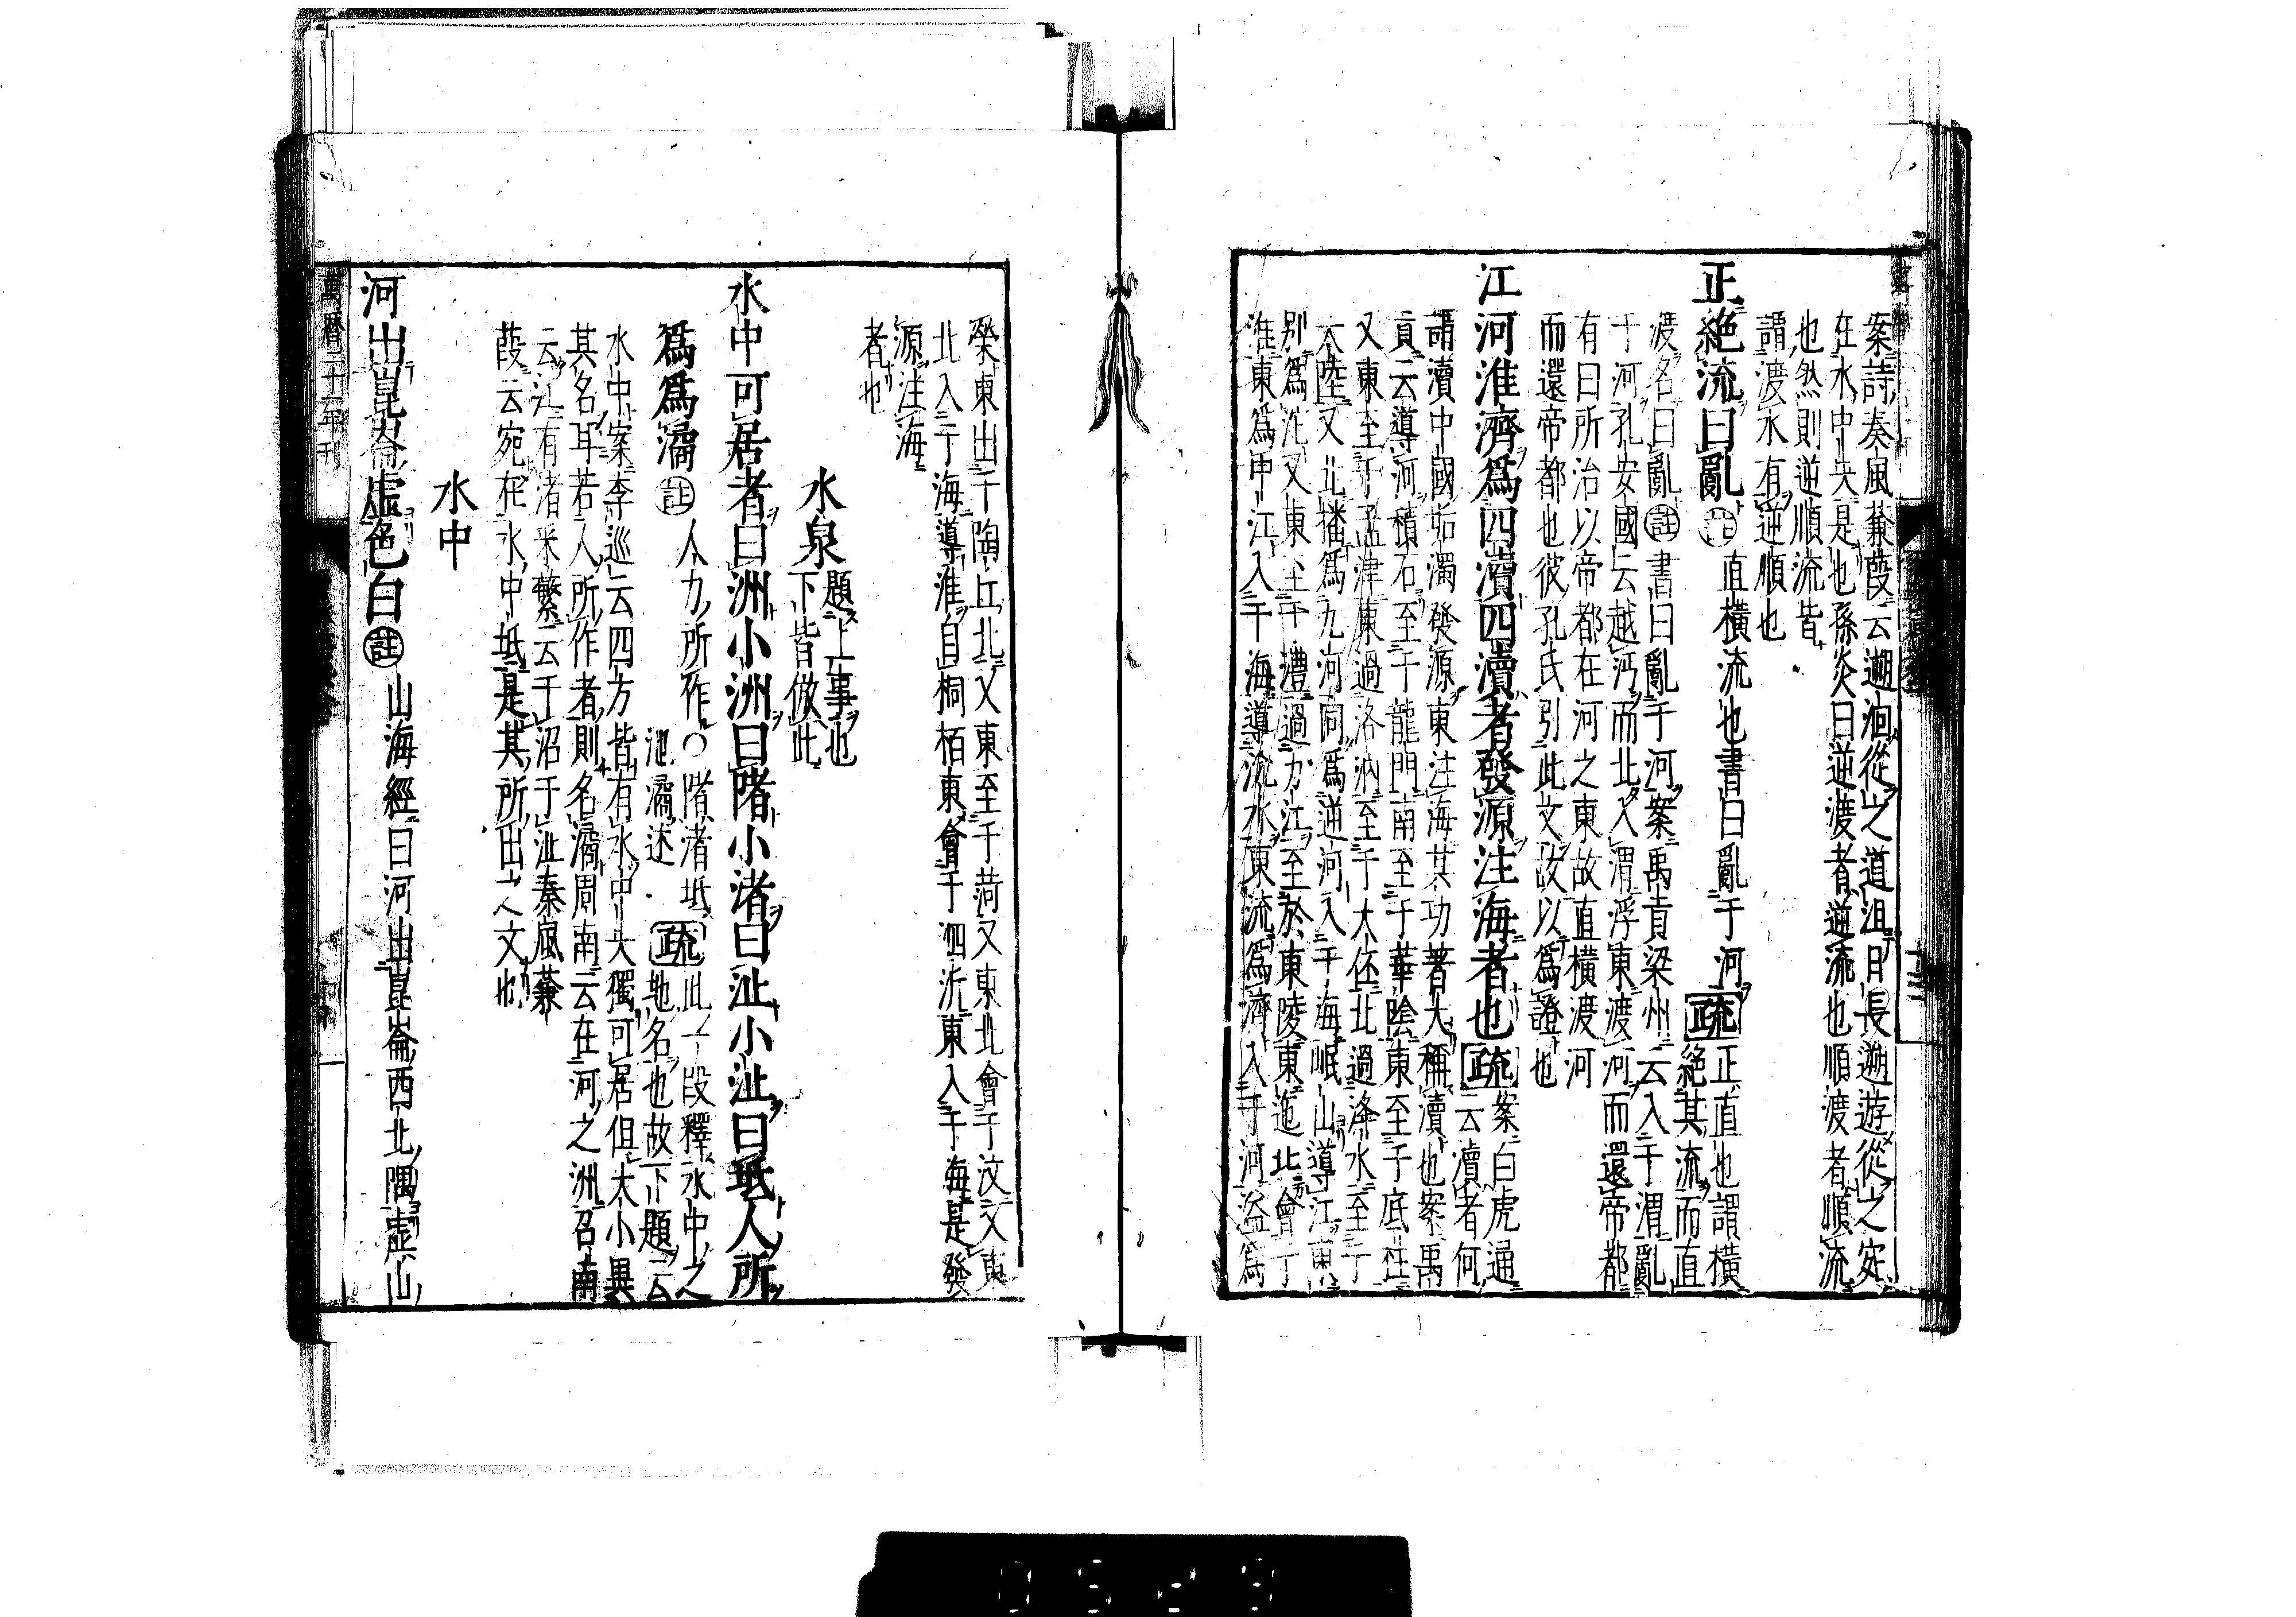 案詩秦風蒹葭云遡洄從之道阻且長遡遊從之宛
在水中央是也孫炎曰逆渡者逆流也順渡者順流
也然則逆順流皆
謂渡水有逆順也
正絶流曰亂註直橫流也書曰亂于河疏正直也謂橫
絶其流而直
渡名曰亂註書曰亂于河案禹貢梁州云入于渭亂
于河孔安國云越沔而北入渭浮東渡河而還帝都
有曰所治以帝都在河之東故直橫渡河
而還帝都也彼孔氏引此文故以爲證也
江河淮濟爲四瀆四瀆者發源注海者也疏案白虎通
云瀆者何
謂瀆中國垢濁發源東注海其功著大稱瀆也案禹
貢云導河積石至于龍門南至于華陰東至于底柱
又東至于孟津東過洛汭至于大伾北過洚水至于
大陸又北播爲九河同爲逆河入于海岷山導江東
別爲沱又東至于澧過九江至於東陵東迤北會于
淮東爲中江入于海導沇水東流爲濟入于河溢爲
榮東出于陶丘北又東至于菏又東北會于汶又東
北入于海導淮自桐栢東會于泗沂東入于海是發
源注海
者也
水泉題上事也
下皆倣此
水中可居者曰洲小洲曰陼小渚曰沚小沚曰坻人所
爲爲潏註人力所作○陼渚坻疏此一段釋水中之
池潏述 地名也故下題云
水中案李巡云四方皆有水中央獨可居但大小異
其名耳若人所作者則名潏周南云在河之洲召南
云江有渚采蘩云于沼于沚秦風蒹
葭云宛在水中坻是其所出之文也
水中
河出崑崙虛色白註山海經曰河出崑崙西北隅虛山
萬曆二十一年刊